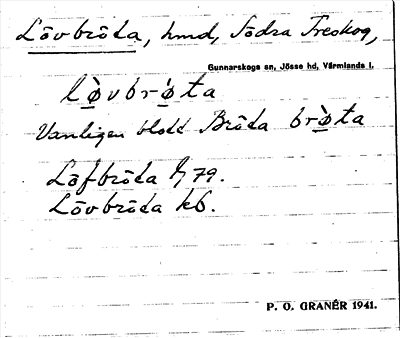 Lövbröta, hmd, Södra Treskog,
Gunnarskogs sn, Jösse hd, Värmlands l.
lø̀vbrø̀ta
Vanligen blott Bröta brø̀ta
Löfbröta 79.
Lövbröta kb.
P. O. GRANÉR 1941.